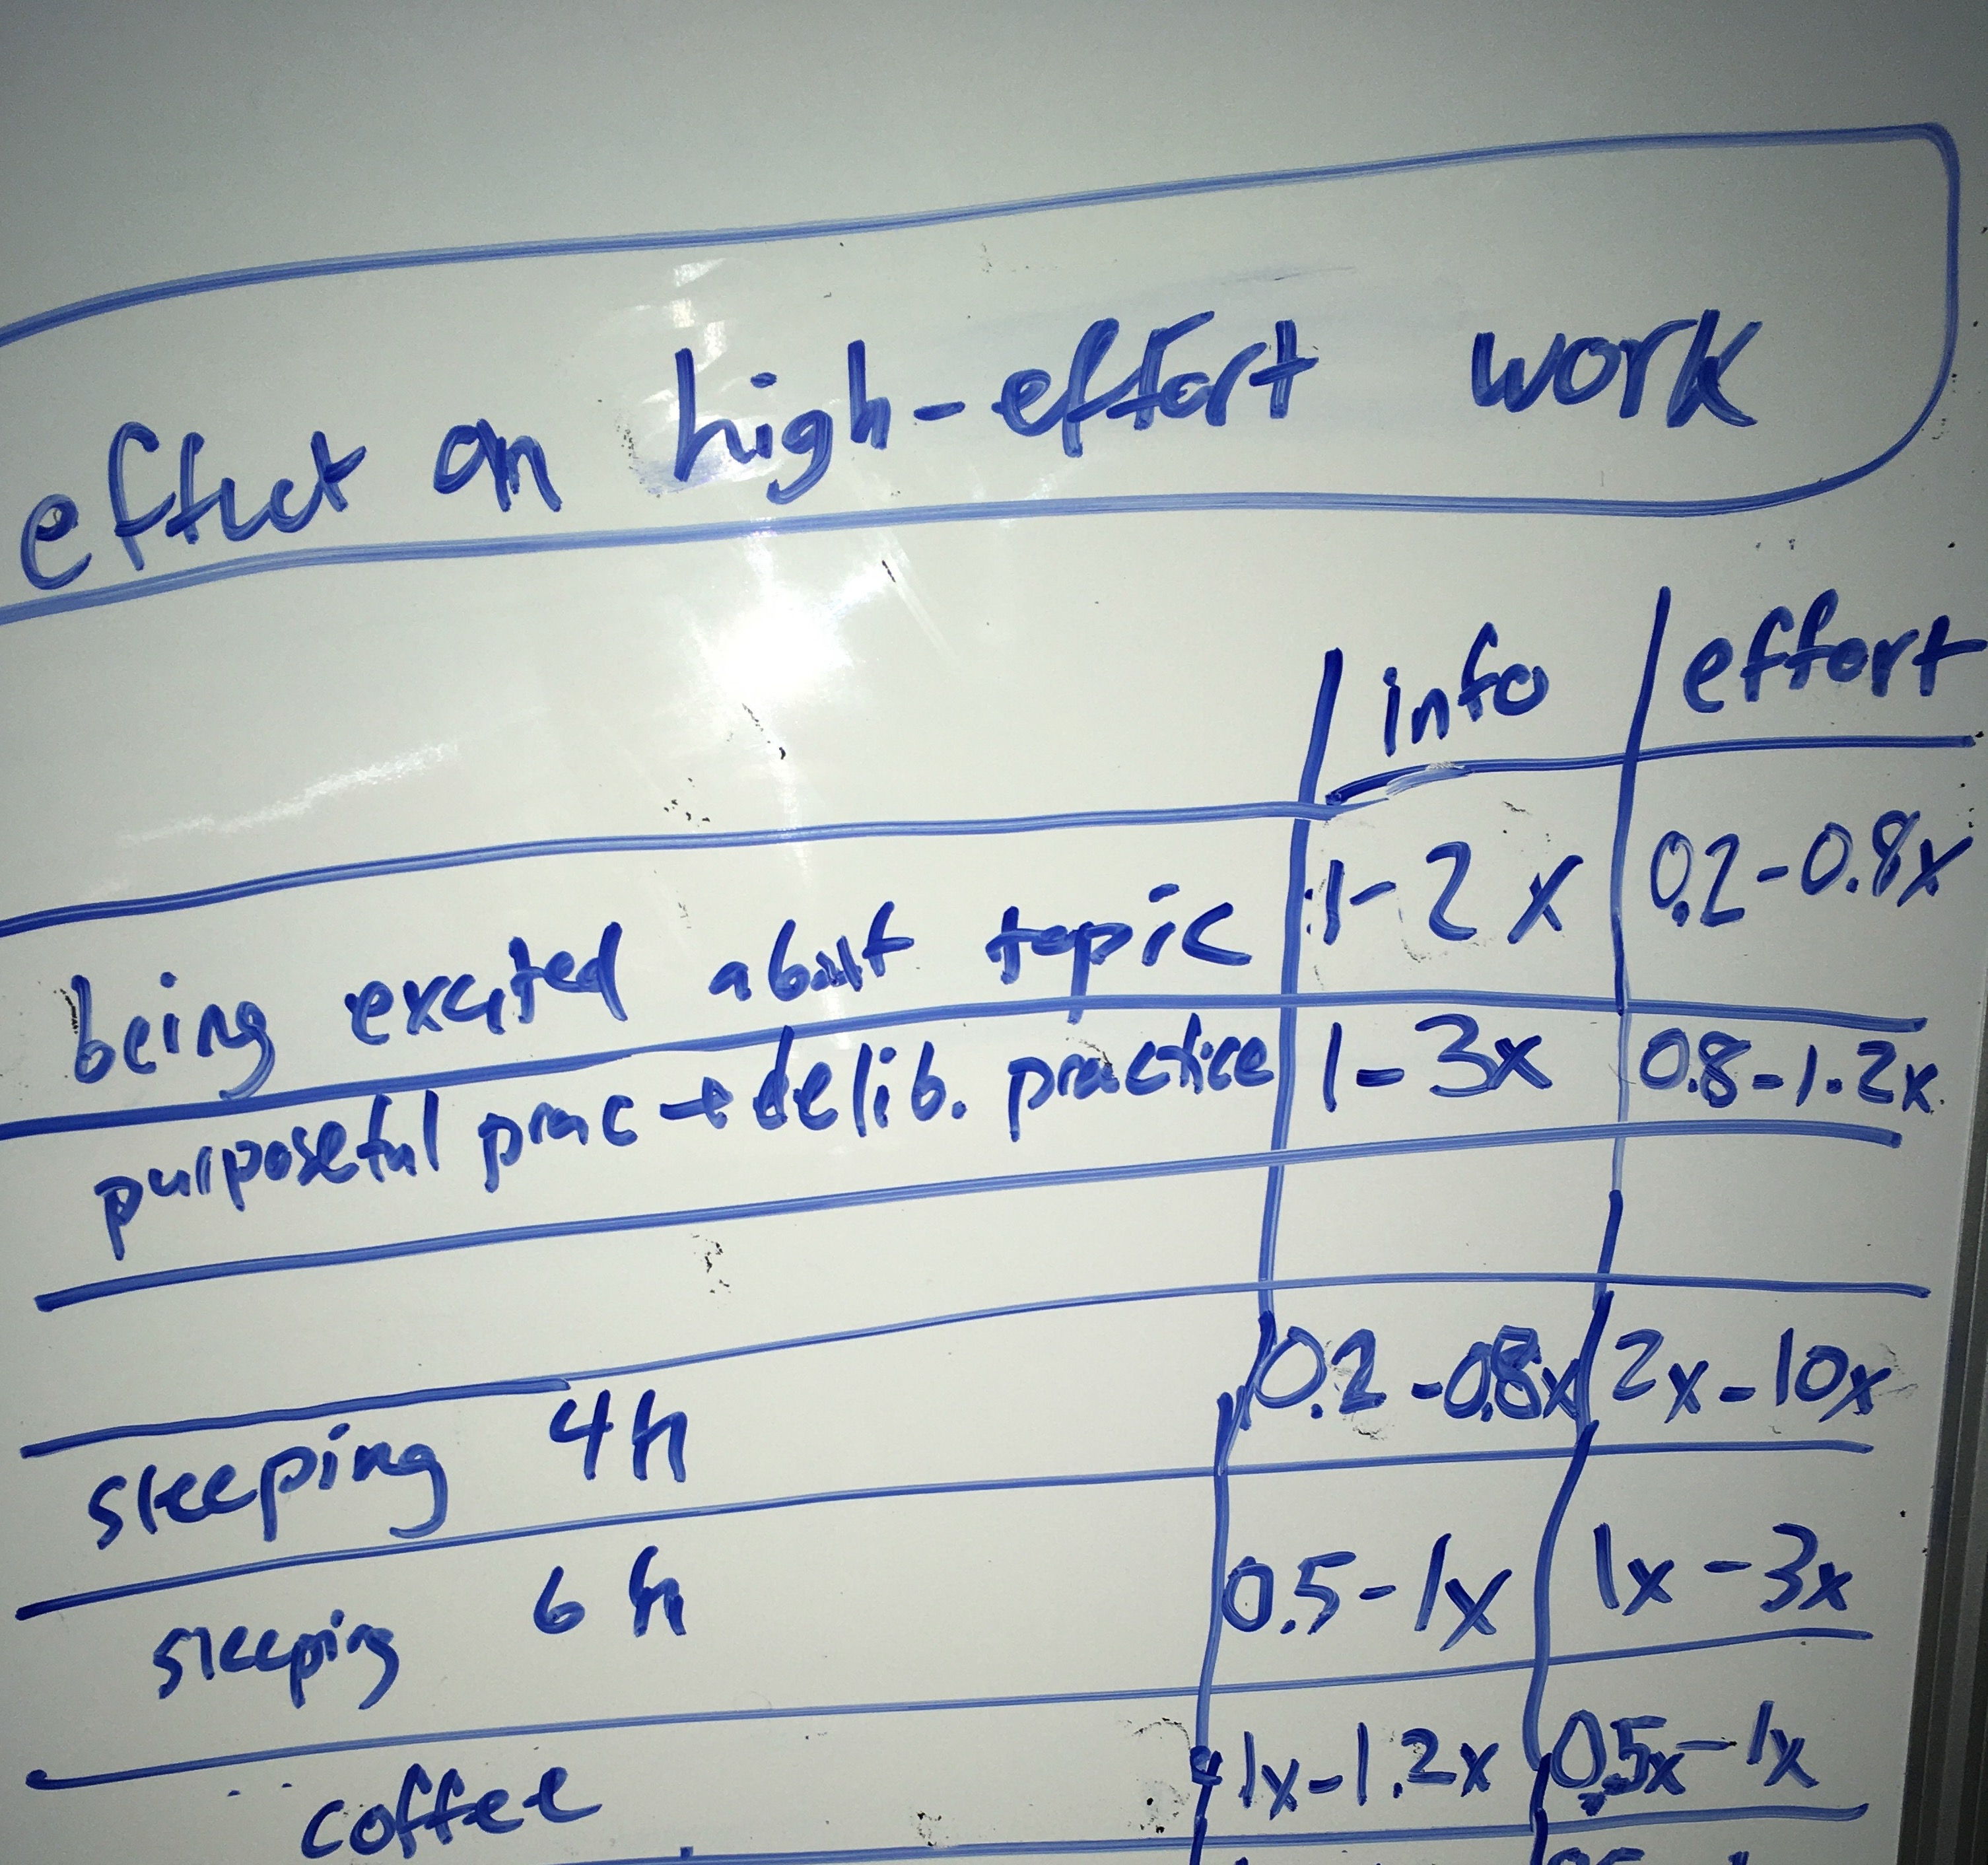 effect on high-effort work
info effort
being excited about topic 1-2x 0.2-0.8x
purposeful prac → delib. practice 1-3x 0.8-1.2x
sleeping 4h 0.2-0.8x 2x-10x
sleeping 6h 0.5-1x 1x-3x
coffee 1x-1.2x 0.5x-1x